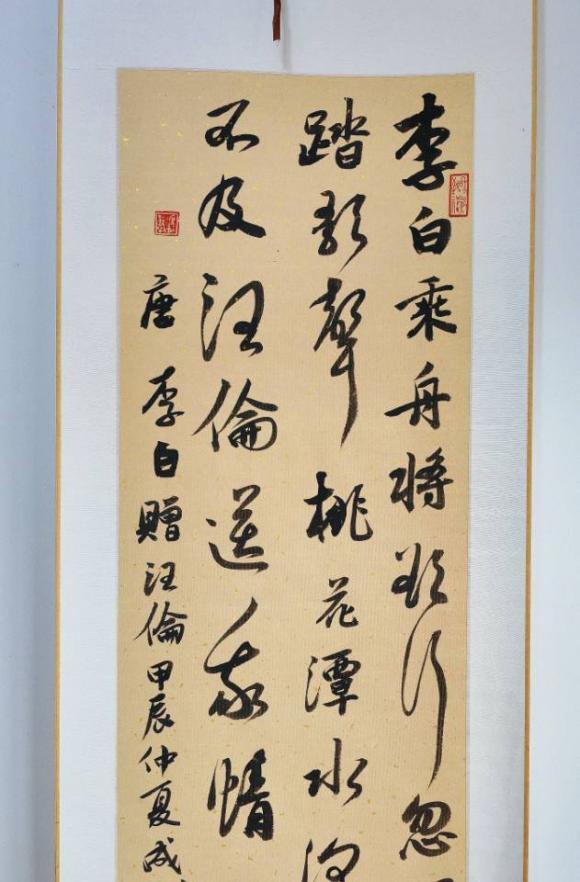 李白乘舟將欲行忽
踏歌聲桃花潭水深
不及汪倫送我情
唐 李白贈汪倫甲辰仲夏成